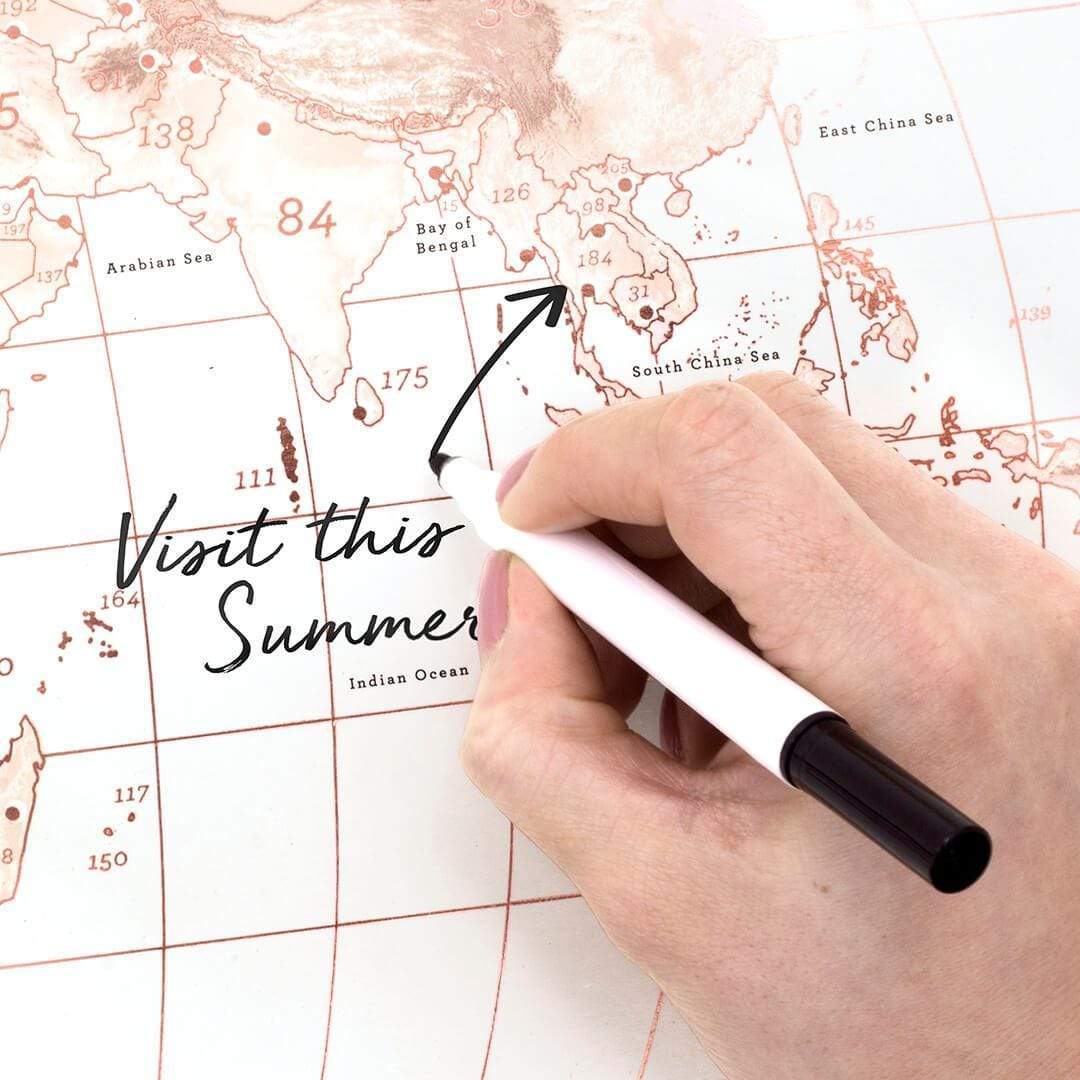 192
36
61
5
138
East China Sea
205
126
9
15
98
84
197
Bay of
Bengal
145
Arabian Sea
184
137
31
139
South China Sea
175
111
Visit this
164
Summer
Indian Ocean
117
150
8